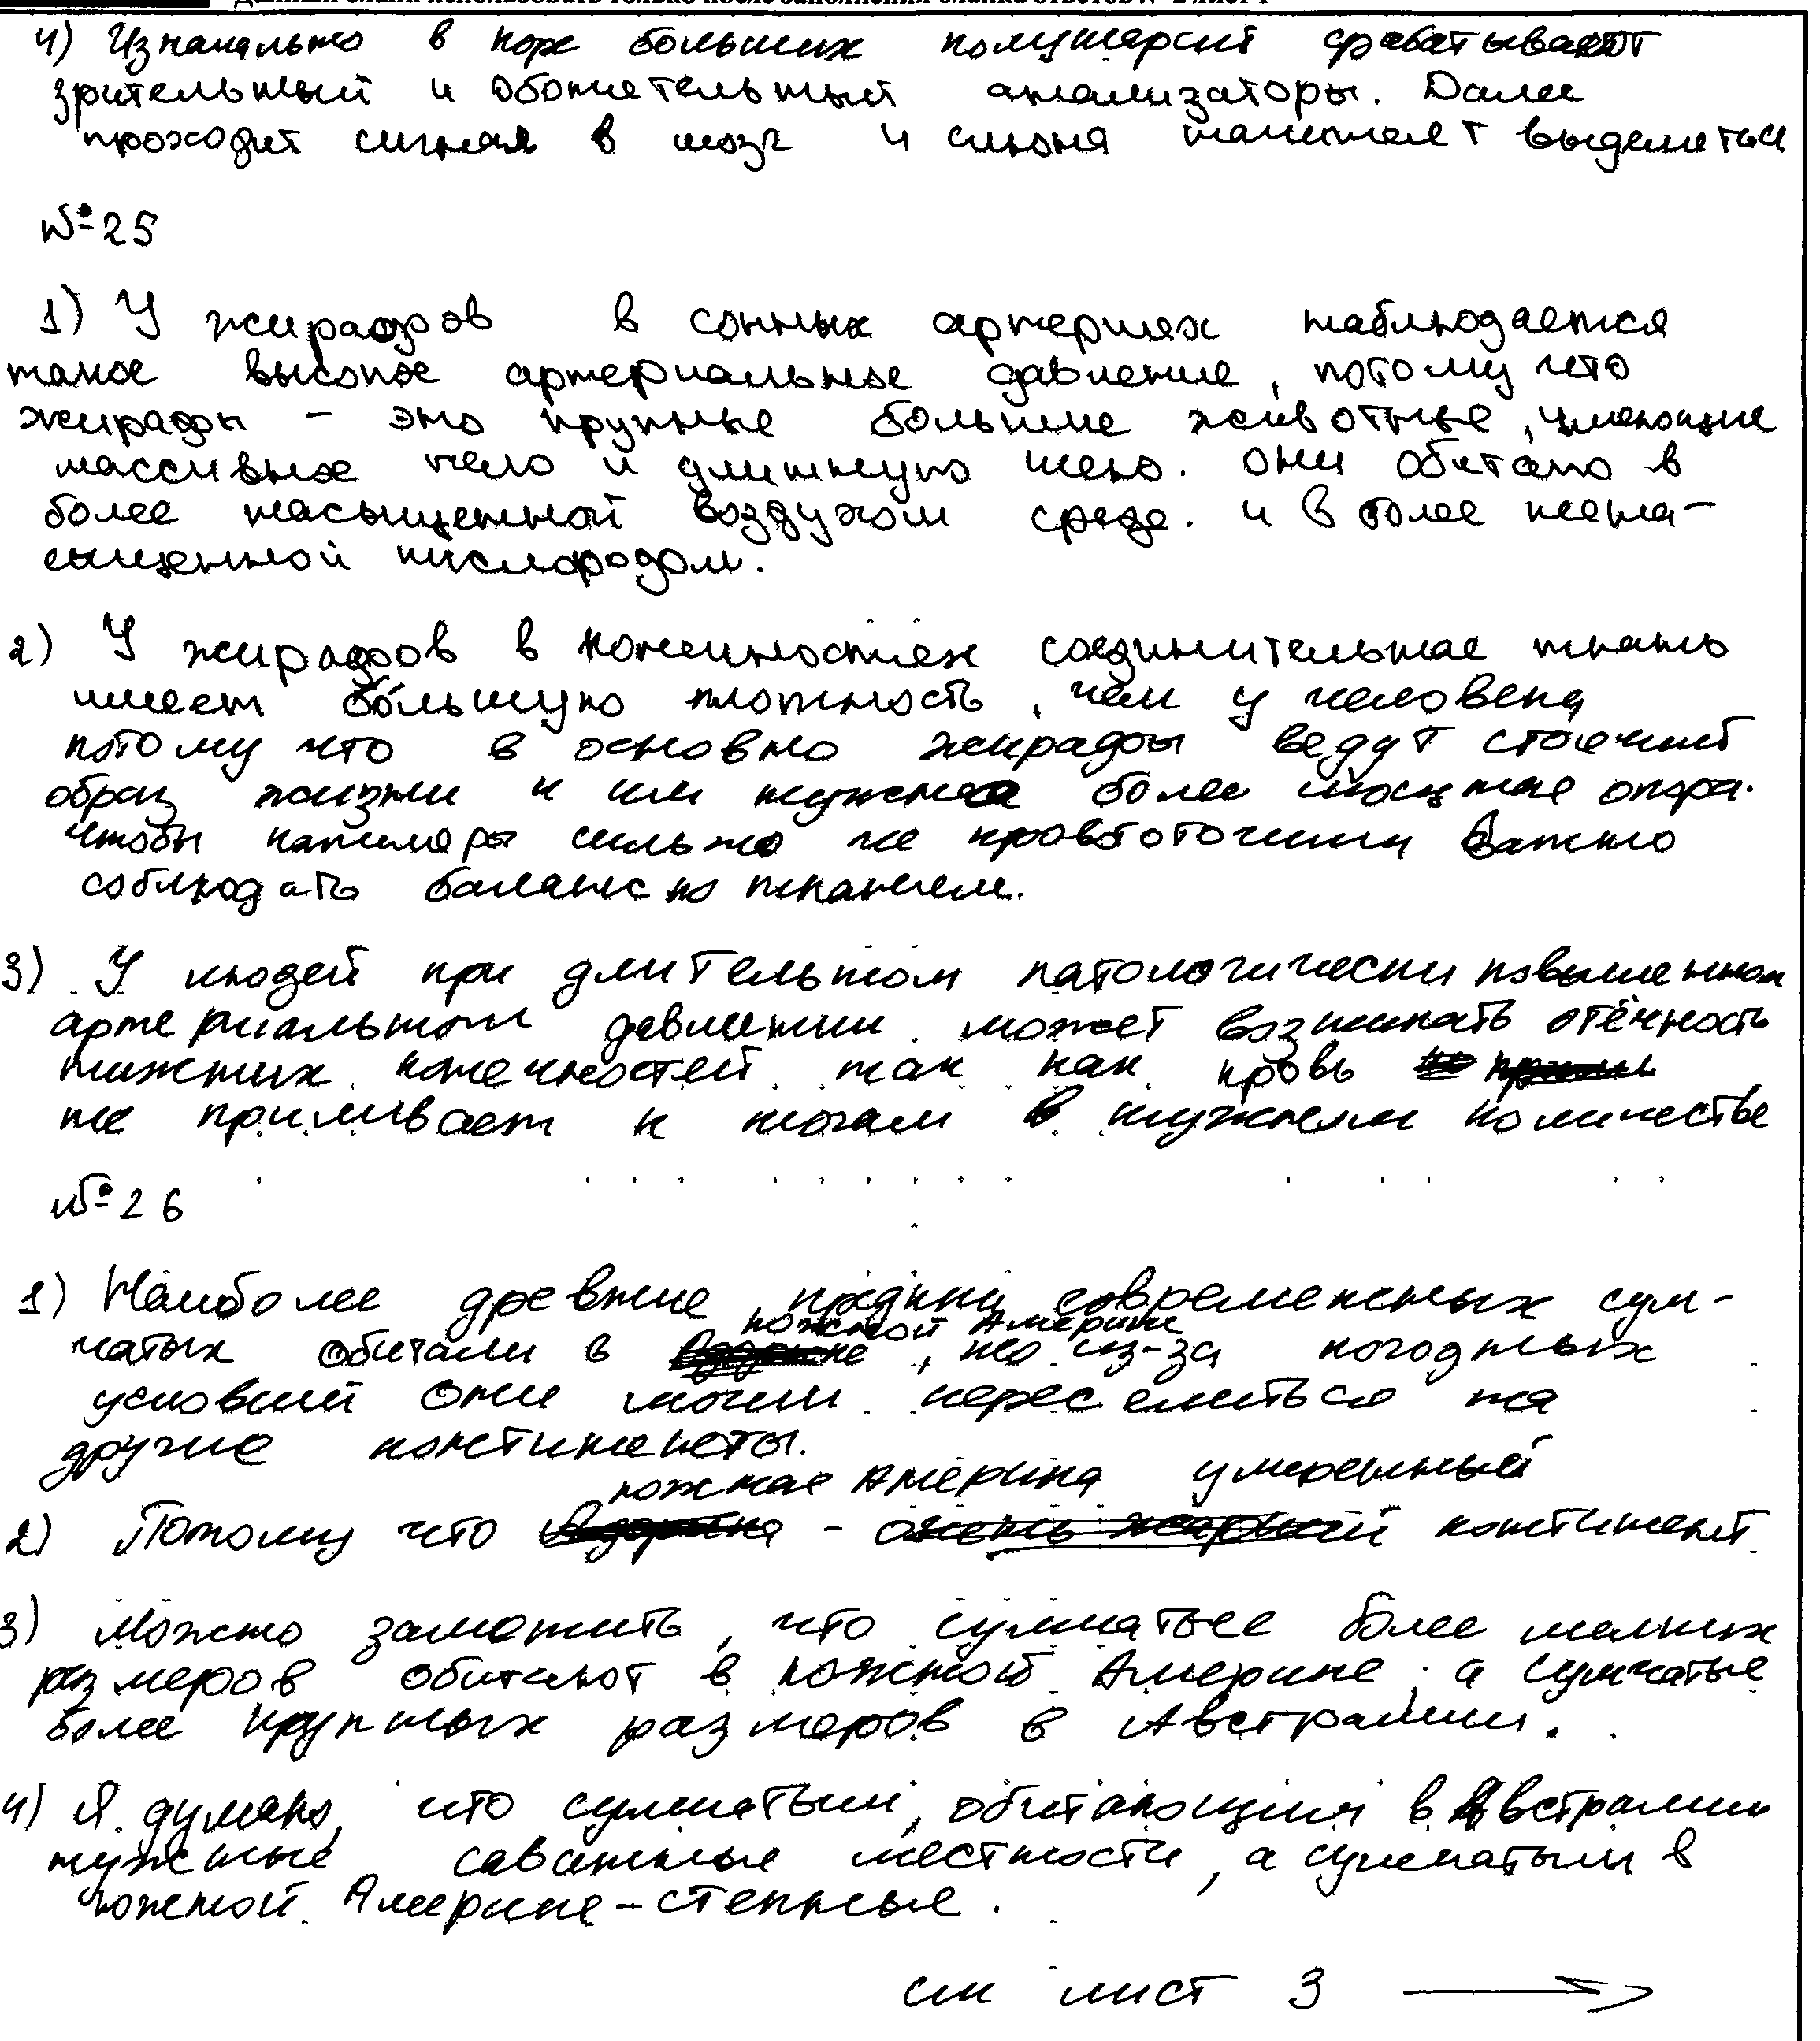 4) Изначально в коре больших полушарий срабатывают
зрительный и обонятельный анализаторы. Далее
проходит сигнал в мозг и слюна начинает выделяться
№25
1) У жирафов в сонных артериях наблюдается
такое высокое артериальное давление, потому что
жирафы - это крупные большие животные, имеющие
массивное тело и длинную шею. Они обитают в
более насыщенной воздухом среде. и в более нена-
сыщенной кислородом.
2) У жирафов в конечностях соединительная ткань
имеет большую плотность, чем у человека
потому что в основно жирафы ведут стоячий
образ жизни и им нужна более мощная опора.
Чтобы капилляры сильно не кровоточили важно
соблюдать баланс по тканям.
3) У людей при длительном патологически повышенном
артериальном давлении может возникать отёчность
нижних конечностей так как кровь
не приливает к ногам в нужном количестве
№26
1) Наиболее древние предки современных сум-
южной Америке
чатых обитали в , но из-за погодных
условий они могли переселиться на
другие континенты.
южная Америка умеренный
2) Потому что - континент
3) Можно заметить, что сумчатые более мелких
размеров обитают в южной Америке, а сумчатые
более крупных размеров в Австралии.
4) Я думаю, что сумчатым, обитающим в Австралии
нужные саванные местности, а сумчатым в
южной Америке - степные.
см лист 3 →